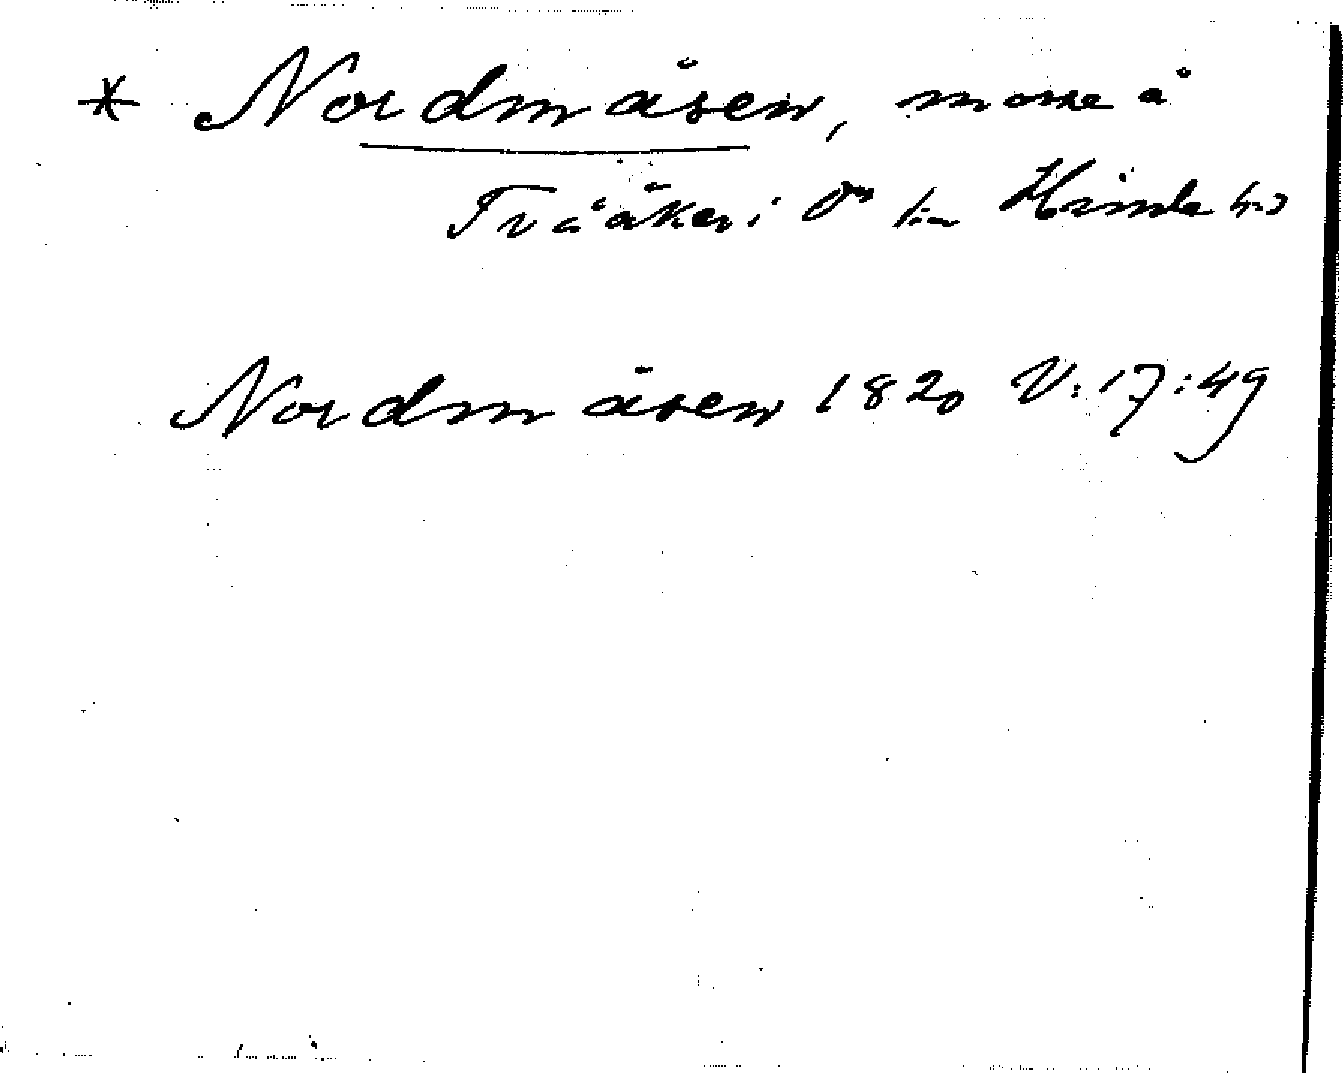 * Nordmåsen, mosse å
Tvååker i Dm sn Himle hd
Nordmåsen 1820 V:17:49